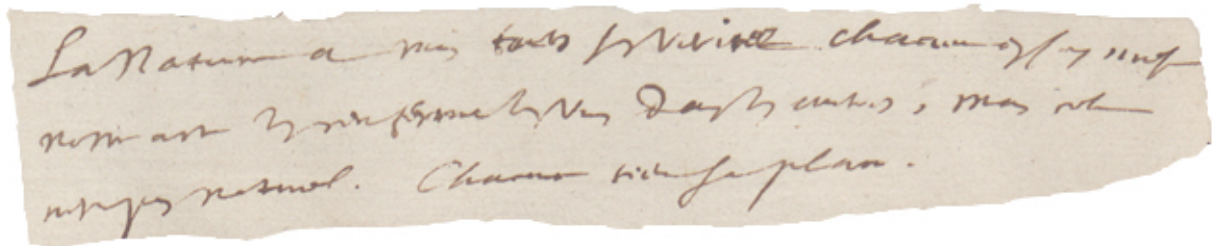 La Nature a mis toutes ses veritez chacune en soy mesme
nostre art les renferme les unes dans les autres, mais cela
n'est pas naturel. Chacune tient sa place.